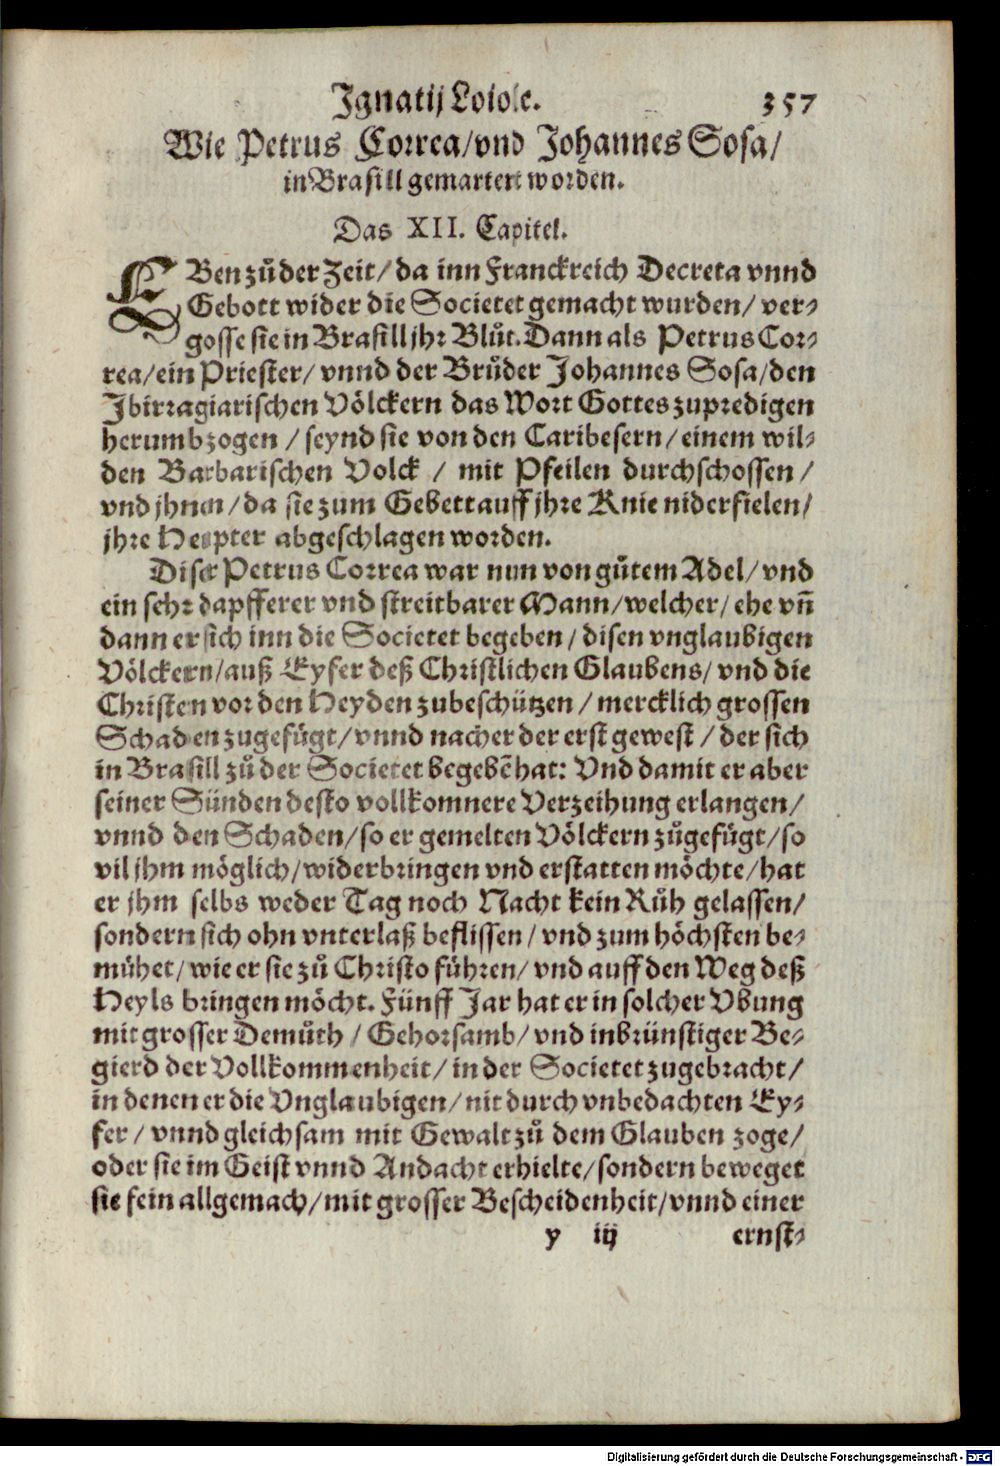 Ignatij Loiole. 357
Wie Petrus Correa/vnd Johannes Sosa/
in Brasill gemartert worden.
Das XII. Capitel.
EBen zů der Zeit/ da inn Franckreich Decreta vnnd
Gebott wider die Societet gemacht wurden/ ver-
gosse sie in Brasill jhr Blůt. Dann als Petrus Cor-
rea/ein Priester/ vnnd der Brůder Johannes Sosa/den
Jbirragiarischen Völckern das Wort Gottes zupredigen
herumb zogen / seynd sie von den Caribesern/ einem wil-
den Barbarischen Volck / mit Pfeilen durchschossen /
vnd jhnen/ da sie zum Gebett auff jhre Knie niderfielen/
jhre Heupter abgeschlagen worden.
Diser Petrus Correa war nun von gůtem Adel/ vnd
ein sehr dapfferer vnd streitbarer Mann/welcher/ ehe vñ
dann er sich inn die Societet begeben/ disen vnglaubigen
Völckern/auß Eyfer deß Christlichen Glaubens/ vnd die
Christen vor den Heyden zubeschützen / mercklich grossen
Schaden zugefügt/ vnnd nacher der erst gewest / der sich
in Brasill zů der Societet begebẽ hat: Vnd damit er aber
seiner Sünden desto vollkomnere Verzeihung erlangen/
vnnd den Schaden/so er gemelten Völckern zůgefügt/ so
vil jhm möglich/widerbringen vnd erstatten möchte/ hat
er jhm selbs weder Tag noch Nacht kein Růh gelassen/
sondern sich ohn vnterlaß beflissen / vnd zum höchsten be-
mühet/ wie er sie zů Christo führen/ vnd auff den Weg deß
Heyls bringen möcht. Fünff Jar hat er in solcher Vbung
mit grosser Demůth / Gehorsamb/ vnd inbrünstiger Be-
gierd der Vollkommenheit/ in der Societet zugebracht/
in denen er die Vnglaubigen/ nit durch vnbedachten Ey-
fer / vnnd gleichsam mit Gewalt zů dem Glauben zoge/
oder sie im Geist vnnd Andacht erhielte/ sondern beweget
sie fein allgemach/ mit grosser Bescheidenheit/ vnnd einer
y iij ernst-
Digitalisierung gefördert durch die Deutsche Forschungsgemeinschaft - DFG